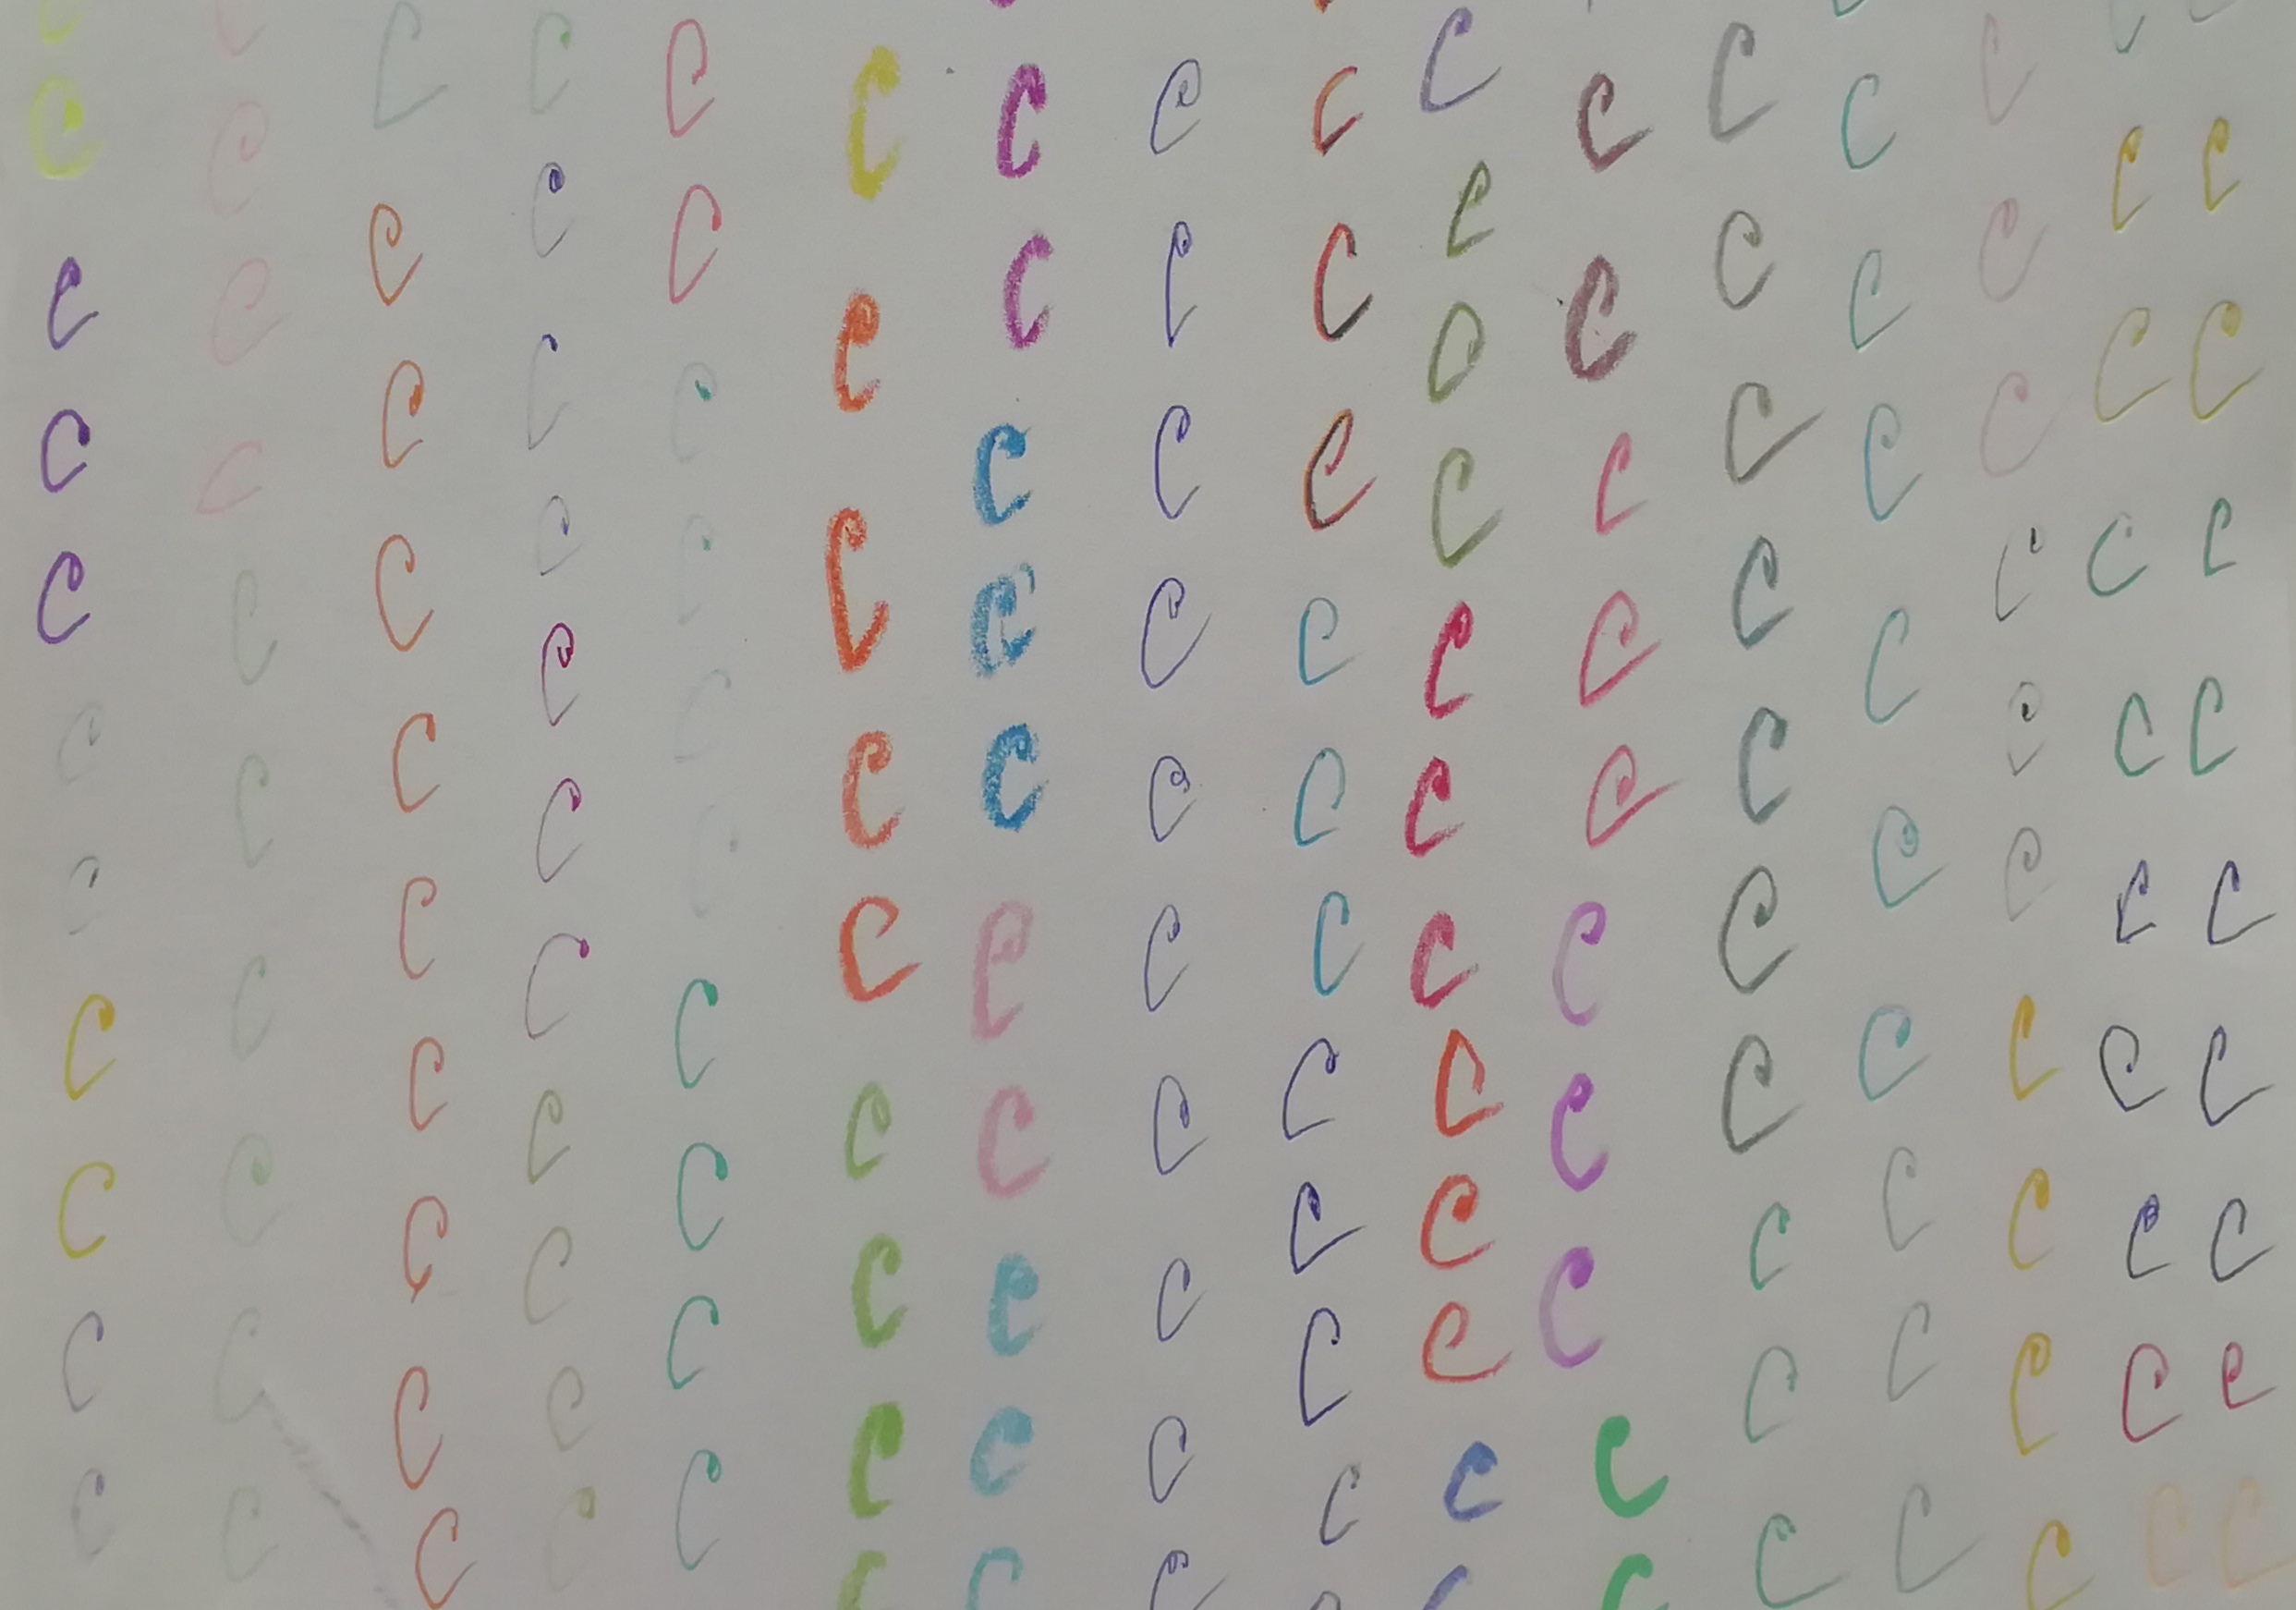 C C C C C C C C C C C C C C C C
C C C C C C C C C C C C C C C C
C C C C C C C C C C C C C C C C
C C C C C C C C C C C C C C C C
C C C C C C C C C C C C C C C C
C C C C C C C C C C C C C C C C
C C C C C C C C C C C C C C C C
C C C C C C C C C C C C C C C C
C C C C C C C C C C C C C C C C
C C C C C C C C C C C C C C C C